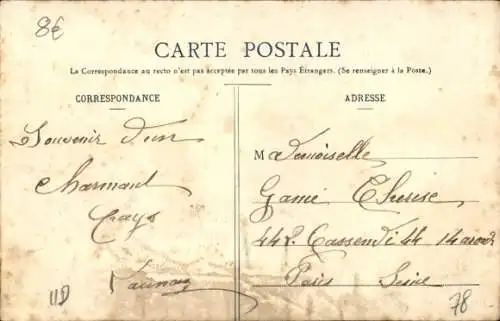 8€
CARTE POSTALE
La Correspondance au recto n'est pas acceptée par tous les Pays Étrangers. (Se renseigner à la Poste.)
CORRESPONDANCE
ADRESSE
Souvenir d'un
charmant
Pays
Mademoiselle
44 R. Cassendi 44 14
Paris Seine
118
78